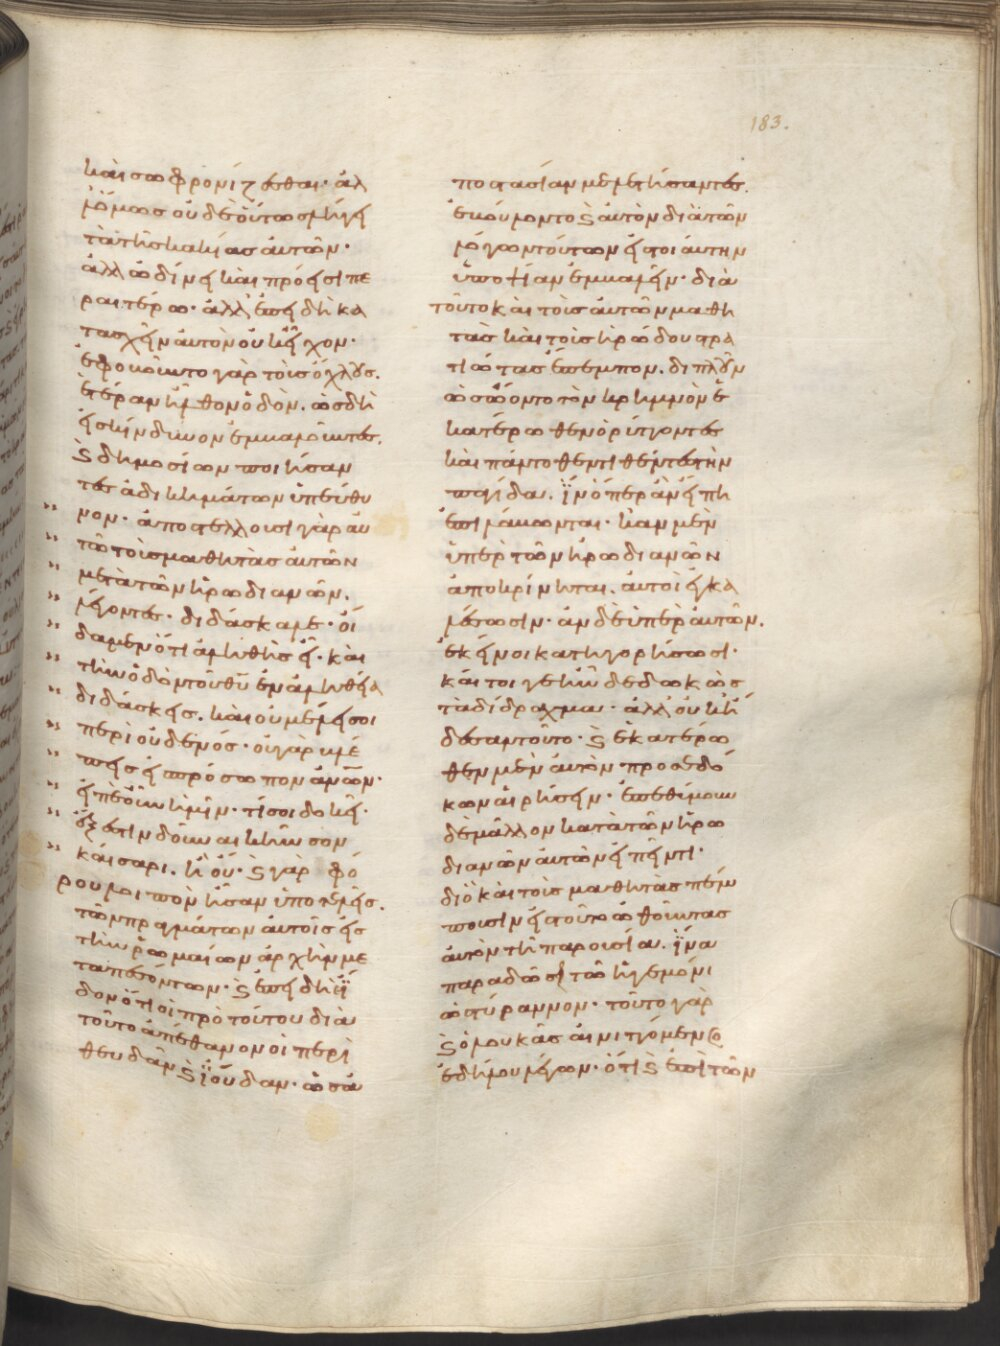 183.
καὶ σωφρονίζεσθαι· ἀλ
λ' ὅμως οὐδὲ οὕτως λήγει
τὰ τῆς κακίας αὐτῶν·
ἀλλ' ὠδίνει καὶ πρόεισι πε
ραιτέρω· ἀλλ' ἐπειδὴ κα
τασχεῖν αὐτὸν οὐκ εἶχον·
ἐφοβοῦντο γὰρ τοὺς ὄχλους.
ἑτέραν ἦλθον ὁδόν. ὡς δὴ
εἰς κίνδυνον ἐμβαλοῦντες.
ϗ δημοσίων ποιήσαν
τες ἀδικημάτων ὑπεύθυ
νον· ἀποστέλλουσι γὰρ αὐ
τῶ τοὺς μαθητὰς αὐτῶν
μετὰ τῶν ἡρωδιανῶν.
λέγοντες· διδάσκαλε· οἴ
δαμεν ὅτι ἀληθὴς εἶ· καὶ
τὴν ὁδὸν τοῦ θῦ ἐν ἀληθεία
διδάσκεις. καὶ οὐ μέλει σοι
περὶ οὐδενός· οὐ γὰρ βλέ
πεις εἰς πρόσωπον ἀνῶν·
εἰπὲ οὖν ἡμῖν· τί σοι δοκεῖ·
ἔξεστιν δοῦναι κῆνσον
καίσαρι. ἢ οὔ· ϗ γὰρ φό
ρου λοιπὸν ἦσαν ὑποτελεῖς.
τῶν πραγμάτων αὐτοῖς εἰς
τὴν ῥωμαίων ἀρχὴν με
ταπεσόντων· ϗ ἐπειδὴ εἶ
δον ὅτι οἱ πρὸ τούτου διὰ
τοῦτο ἀπέθανον οἱ περὶ
θευδᾶν ϗ ϊούδαν· ὡς ἀ
ποστασίαν μελετήσαντες.
ἐβούλοντο ϗ αὐτὸν διὰ τῶν
λόγων τούτων εἰς τοιαύτην
ὑποψίαν ἐμβαλεῖν· διὰ
τοῦτο καὶ τοὺς αὐτῶν μαθη
τὰς καὶ τοὺς ἡρώδου στρα
τιώτας ἔπεμπον. διπλοῦν
ὡς ᾤοντο τὸν κρημνὸν ἑ
κατέρωθεν ὀρύττοντες
καὶ πάντοθεν τιθέντες τὴν
παγίδα. ϊν' ὅπερ ἂν εἴπη
ἐπιλάβωνται· κἂν μὲν
ὑπὲρ τῶν ἡρωδιανῶν
ἀποκρίνηται. αὐτοὶ ἐγκα
λέσωσιν· ἂν δὲ ὑπὲρ αὐτῶν.
ἐκεῖνοι κατηγορήσωσι·
καίτοιγε ἦν δεδωκὼς
τὰ δίδραχμα· ἀλλ' οὐκ ἤ
δεσαν τοῦτο· ϗ ἑκατέρω
θεν μὲν αὐτὸν προσεδό
κων αἱρήσειν· ἐπεθύμουν
δὲ μᾶλλον κατὰ τῶν ἡρω
διανῶν αὐτὸν εἰπεῖν τι·
διὸ καὶ τοὺς μαθητὰς πέμ
πουσιν εἰς τοῦτο ὠθοῦντας
αὐτὸν τῆ παρουσία. ϊνα
παραδῶσι τῶ ἡγεμόνι
ὡς τύραννον· τοῦτο γὰρ
ϗ ὁ λουκᾶς αἰνιττόμενος
ἐδήλου λέγων· ὅτι ϗ ἐπὶ τῶν